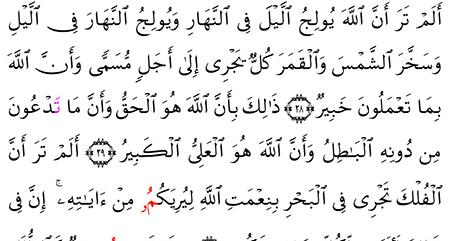 أَلَمْ تَرَ أَنَّ ٱللَّهَ يُولِجُ ٱلَّيْلَ فِى ٱلنَّهَارِ وَيُولِجُ ٱلنَّهَارَ فِى ٱلَّيْلِ
وَسَخَّرَ ٱلشَّمْسَ وَٱلْقَمَرَ كُلٌّ يَجْرِىٓ إِلَىٰٓ أَجَلٍ مُّسَمًّى وَأَنَّ ٱللَّهَ
بِمَا تَعْمَلُونَ خَبِيرٌ ﴿٢٨﴾ ذَٰلِكَ بِأَنَّ ٱللَّهَ هُوَ ٱلْحَقُّ وَأَنَّ مَا تَدْعُونَ
مِن دُونِهِ ٱلْبَٰطِلُ وَأَنَّ ٱللَّهَ هُوَ ٱلْعَلِىُّ ٱلْكَبِيرُ ﴿٢٩﴾ أَلَمْ تَرَ أَنَّ
ٱلْفُلْكَ تَجْرِى فِى ٱلْبَحْرِ بِنِعْمَتِ ٱللَّهِ لِيُرِيَكُمُۥ مِنْ ءَايَٰتِهِۦٓۚ إِنَّ فِى